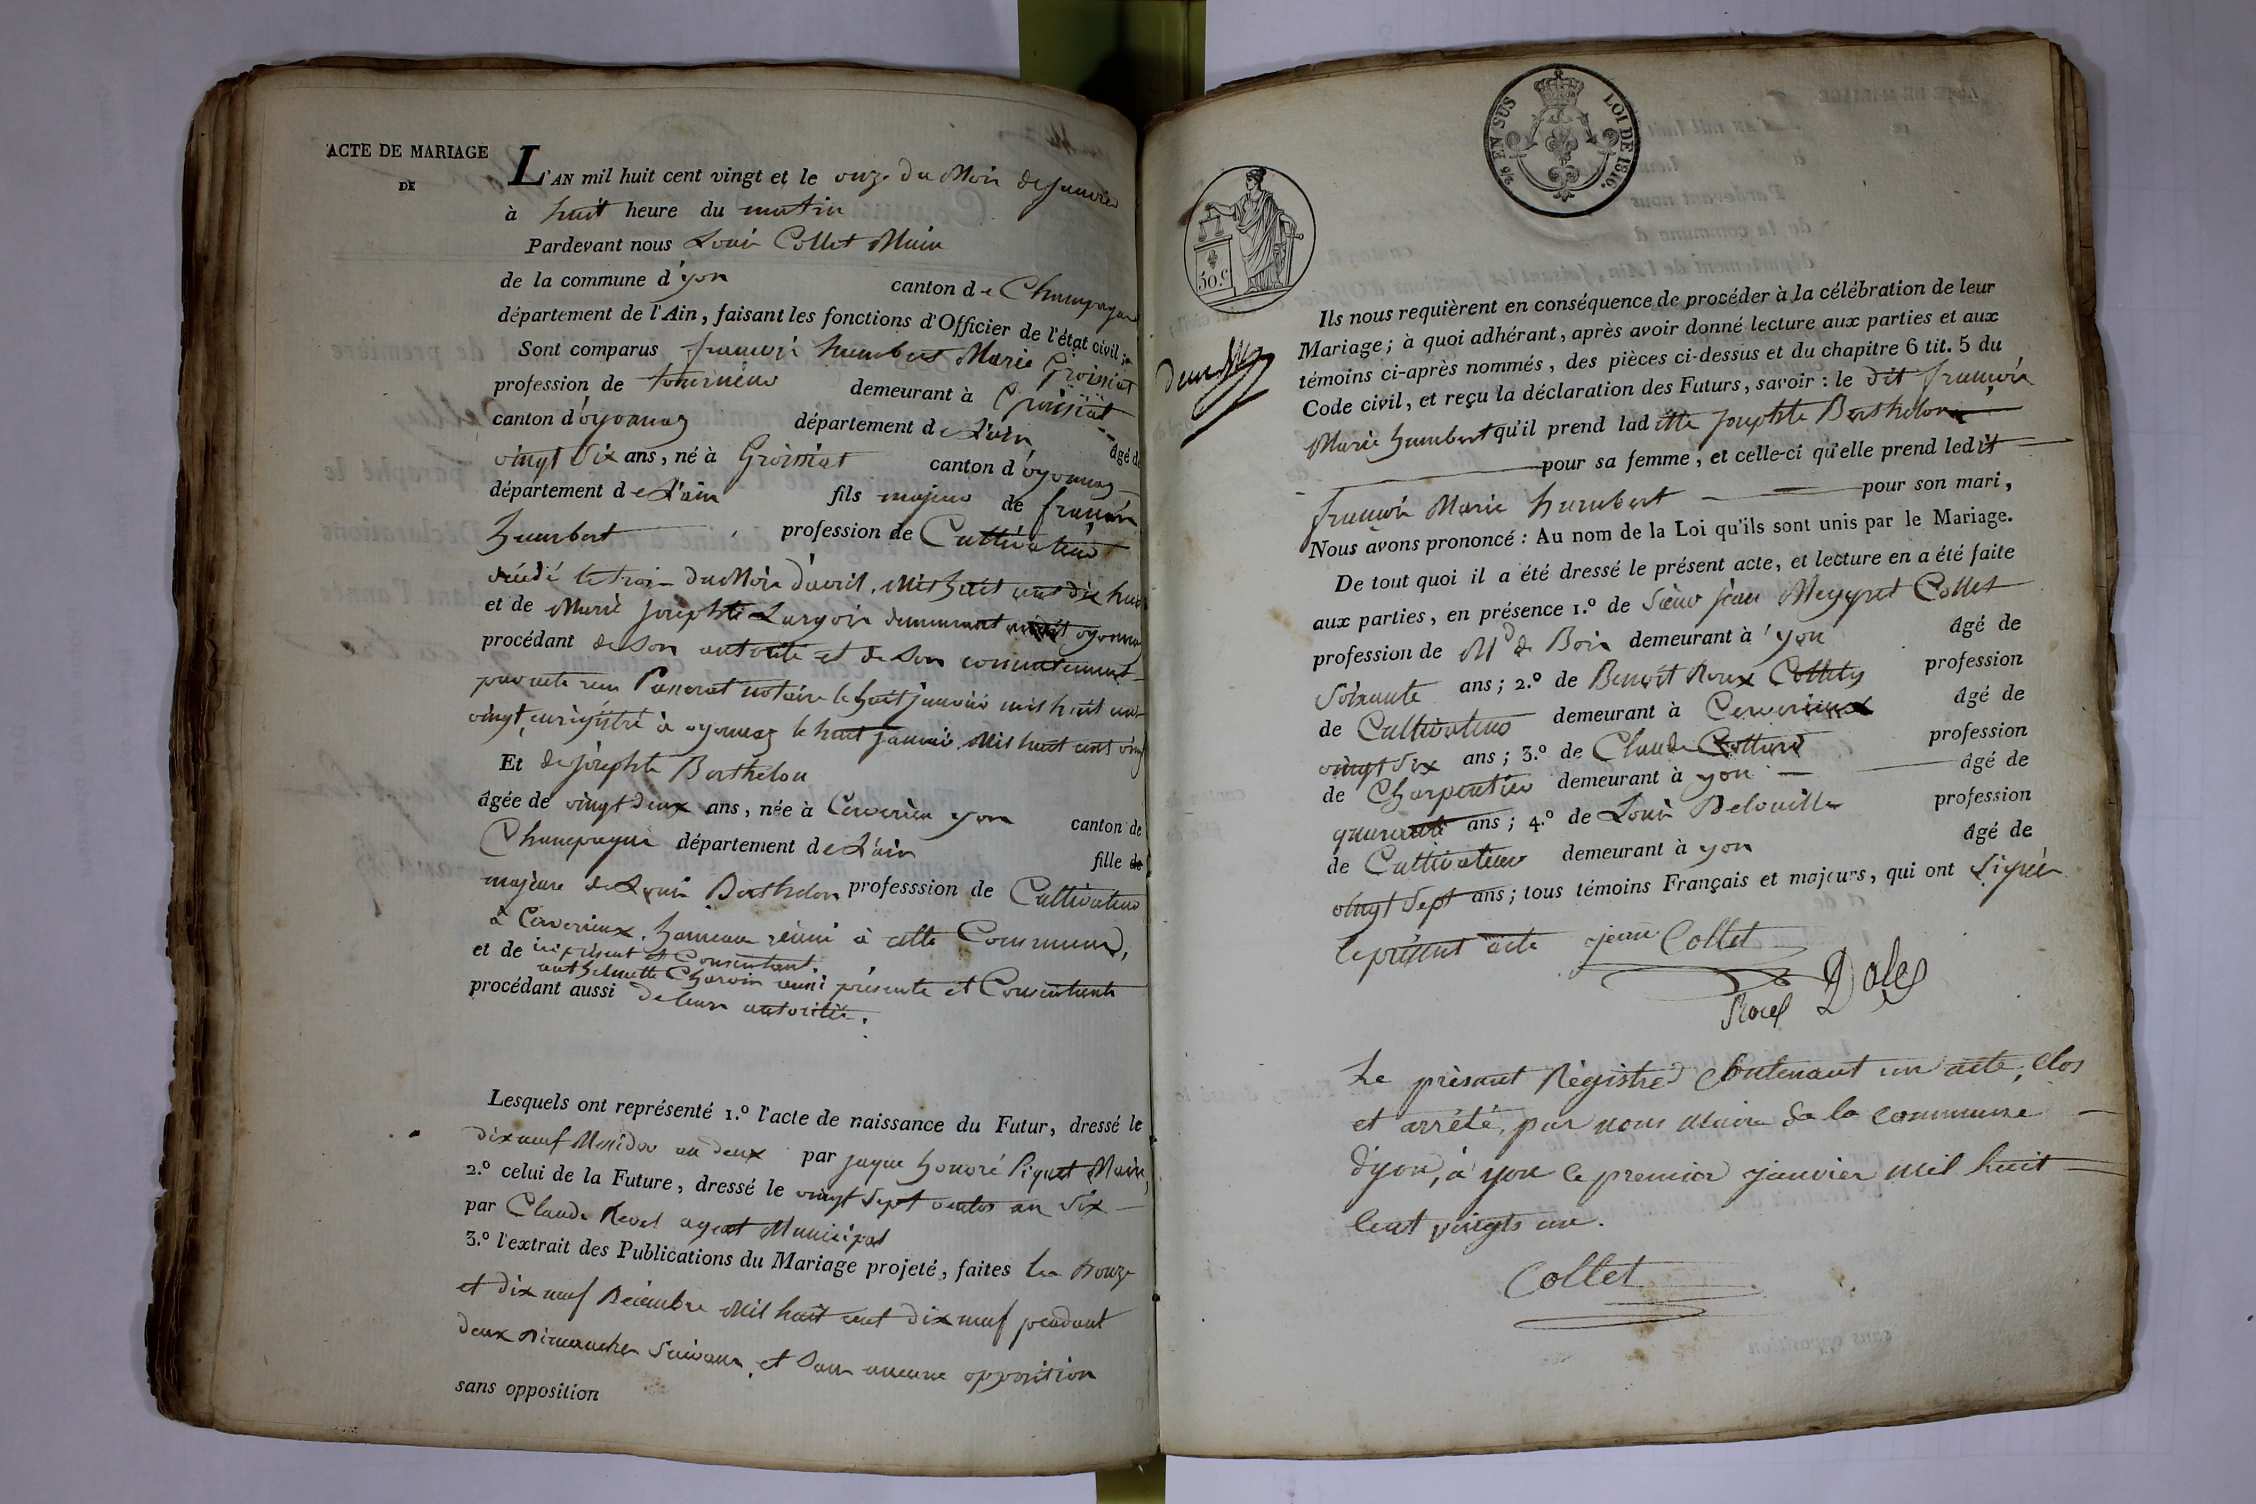 ACTE DE MARIAGE
DE
L'AN mil huit cent vingt et le onze du Mois de janvier
à huit heure du matin
Pardevant nous Louis Collet Maire
de la commune d'yon canton de Champagne
département de l'Ain, faisant les fonctions d'Officier de l'état civil;
Sont comparus françois humbert Marie Groissiat
profession de tourneur demeurant à Groissiat
canton d'oyonnaz département de L'ain âgé de
vingt Six ans, né à Groissiat canton d'oyonnaz
département de L'ain fils majeur de françois
humbert profession de Cultivateur
décédé le trois du Mois d'avril, Mil huit cent dix huit
et de Marie josephte Lurgoin demeurant oyonna
procédant de son autorité et de son consentement
par acte reçu Panerat notaire le huit janvier mil huit cent
vingt, enrégistré à oyonnaz le huit janvier Mil huit cent vingt
Et de josephte Berthelon
âgée de vingt deux ans, née à Cerverieu yon canton de
Champagne département de L'ain fille de
majeure de Louis Berthelon professsion de Cultivateur
à Cerverieux, hameau réuni à cette Commune,
ici présent et Consentant.
et de anthelmette Charvin aussi présente et Consentante
procédant aussi de leur autorité.
Lesquels ont représenté 1.º l'acte de naissance du Futur, dressé le
dix neuf Messidor an deux par jaque honoré Piquet Maire,
2.º celui de la Future, dressé le vingt Sept ventos an Six
par Claude Revel agent Municipal
3.º l'extrait des Publications du Mariage projeté, faites les Douze
et dix neuf Décembre Mil huit cent dix neuf pendant
deux Dimanches Suivans, et Sans aucune opposition
sans opposition
2/5 EN SUS LOI DE 1816.
50.c
deux
Ils nous requièrent en conséquence de procéder à la célébration de leur
Mariage; à quoi adhérant, après avoir donné lecture aux parties et aux
témoins ci-après nommés, des pièces ci-dessus et du chapitre 6 tit. 5 du
Code civil, et reçu la déclaration des Futurs, savoir: le dit françois
Marie humbert qu'il prend laditte josephte Berthelon
pour sa femme, et celle-ci qu'elle prend ledit
françois Marie humbert pour son mari,
Nous avons prononcé: Au nom de la Loi qu'ils sont unis par le Mariage.
De tout quoi il a été dressé le présent acte, et lecture en a été faite
aux parties, en présence 1.º de Sieur jean Meyret Collet
profession de Md de Bois demeurant à yon âgé de
Soixante ans; 2.º de Benoit Roux Collety profession
de Cultivateur demeurant à Cerverieux âgé de
vingt Six ans; 3.º de Claude Collard profession
de Charpentier demeurant à yon âgé de
quarante ans; 4.º de Louis Delouille profession
de Cultivateur demeurant à yon âgé de
vingt Sept ans; tous témoins Français et majeurs, qui ont Signés
le présent acte jean Collet
Dales
Le présent Régistre Contenant un acte, Clos
et arrêté, par nous Maire de la commune
d'yon, à yon le premier janvier mil huit
Cent vingts un.
Collet